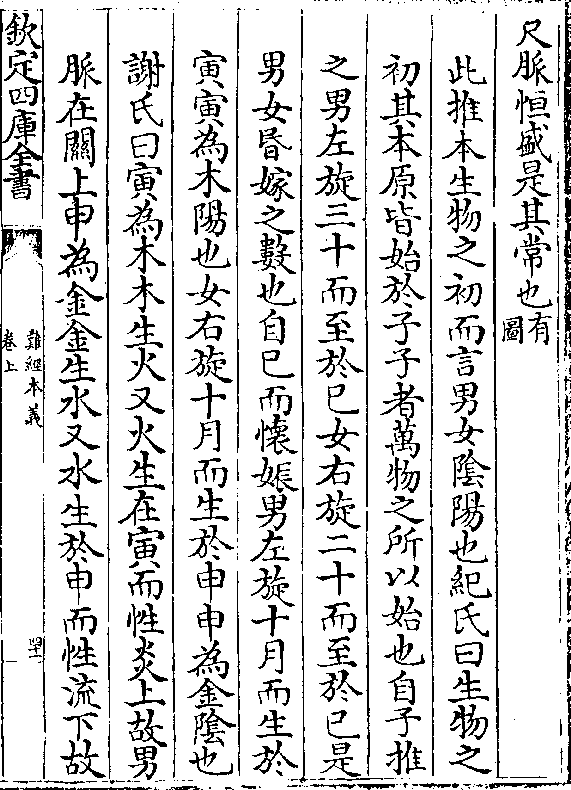 尺脈恒盛是其常也有圖
此推本生物之初而言男女陰陽也紀氏曰生物之
初其本原皆始於子子者萬物之所以始也自子推
之男左旋三十而至於巳女右旋二十而至於巳是
男女昏嫁之數也自巳而懐娠男左旋十月而生於
寅寅為木陽也女右旋十月而生於申申為金陰也
謝氏曰寅為木木生火又火生在寅而性炎上故男
脈在關上申為金金生水又水生於申而性流下故
欽定四庫全書
難經本義
卷上